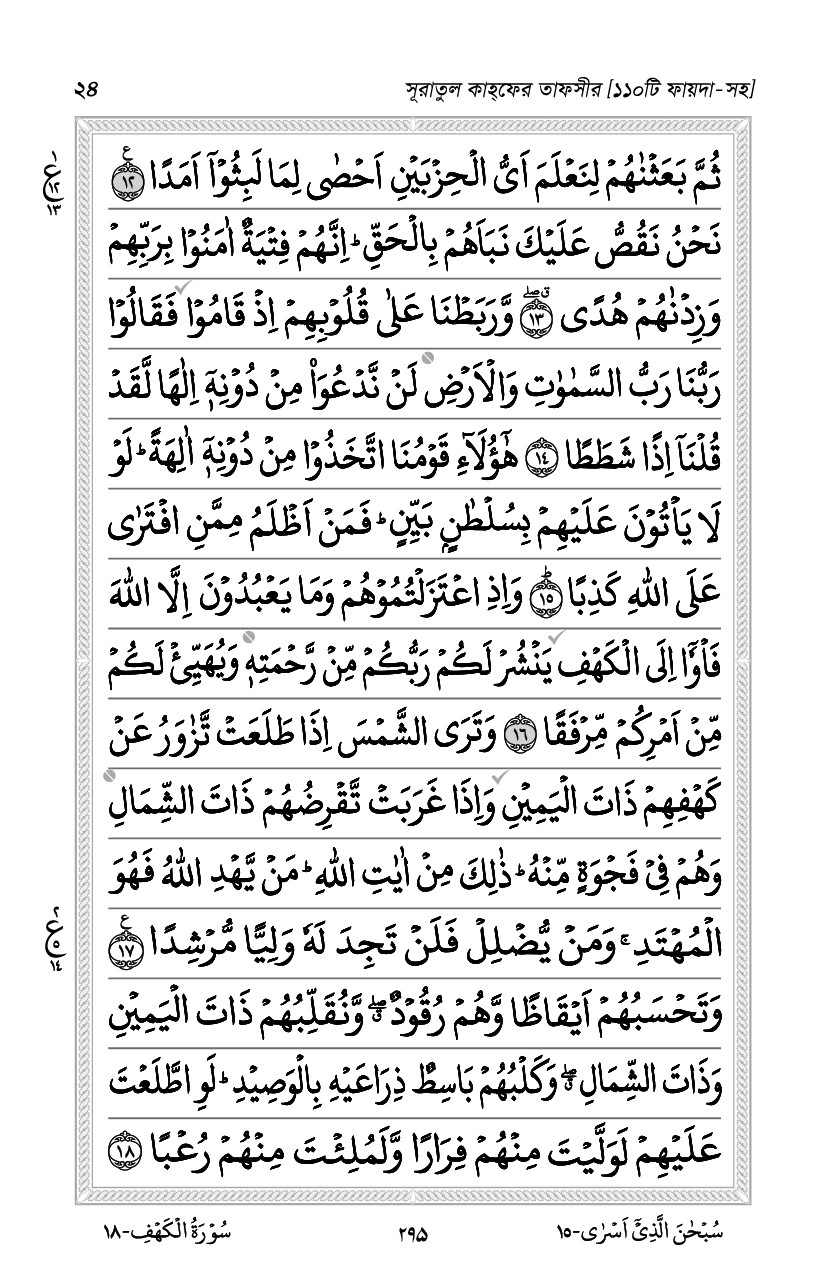 ২৪ সূরাতুল কাহ্‌ফের তাফসীর [১১০টি ফায়দা-সহ]
ثُمَّ بَعَثْنٰهُمْ لِنَعْلَمَ اَیُّ الْحِزْبَیْنِ اَحْصٰی لِمَا لَبِثُوْۤا اَمَدًا ﴿۱۲﴾ ع
نَحْنُ نَقُصُّ عَلَیْكَ نَبَاَهُمْ بِالْحَقِّ ؕ اِنَّهُمْ فِتْیَةٌ اٰمَنُوْا بِرَبِّهِمْ
وَزِدْنٰهُمْ هُدًی ﴿۱۳﴾ وَّرَبَطْنَا عَلٰی قُلُوْبِهِمْ اِذْ قَامُوْا فَقَالُوْا
رَبُّنَا رَبُّ السَّمٰوٰتِ وَالْاَرْضِ لَنْ نَّدْعُوَا۠ مِنْ دُوْنِهٖۤ اِلٰهًا لَّقَدْ
قُلْنَاۤ اِذًا شَطَطًا ﴿۱٤﴾ هٰۤؤُلَآءِ قَوْمُنَا اتَّخَذُوْا مِنْ دُوْنِهٖۤ اٰلِهَةً ؕ لَوْ
لَا یَاْتُوْنَ عَلَیْهِمْ بِسُلْطٰنٍۭ بَیِّنٍ ؕ فَمَنْ اَظْلَمُ مِمَّنِ افْتَرٰی
عَلَی اللهِ كَذِبًا ﴿۱۵﴾ؕ وَاِذِ اعْتَزَلْتُمُوْهُمْ وَمَا یَعْبُدُوْنَ اِلَّا اللهَ
فَاْوٗۤا اِلَی الْكَهْفِ یَنْشُرْ لَكُمْ رَبُّكُمْ مِّنْ رَّحْمَتِهٖ وَیُهَیِّئْ لَكُمْ
مِّنْ اَمْرِكُمْ مِّرْفَقًا ﴿۱۶﴾ وَتَرَی الشَّمْسَ اِذَا طَلَعَتْ تَّزٰوَرُ عَنْ
كَهْفِهِمْ ذَاتَ الْیَمِیْنِ وَاِذَا غَرَبَتْ تَّقْرِضُهُمْ ذَاتَ الشِّمَالِ
وَهُمْ فِیْ فَجْوَةٍ مِّنْهُ ؕ ذٰلِكَ مِنْ اٰیٰتِ اللهِ ؕ مَنْ یَّهْدِ اللهُ فَهُوَ
الْمُهْتَدِ ۚ وَمَنْ یُّضْلِلْ فَلَنْ تَجِدَ لَهٗ وَلِیًّا مُّرْشِدًا ﴿۱۷﴾ ع
وَتَحْسَبُهُمْ اَیْقَاظًا وَّهُمْ رُقُوْدٌ ۖۗ وَّنُقَلِّبُهُمْ ذَاتَ الْیَمِیْنِ
وَذَاتَ الشِّمَالِ ۖۗ وَكَلْبُهُمْ بَاسِطٌ ذِرَاعَیْهِ بِالْوَصِیْدِ ؕ لَوِ اطَّلَعْتَ
عَلَیْهِمْ لَوَلَّیْتَ مِنْهُمْ فِرَارًا وَّلَمُلِئْتَ مِنْهُمْ رُعْبًا ﴿۱۸﴾
سُبْحٰنَ الَّذِیْۤ اَسْرٰی-১৫ ২৯৫ سُوْرَةُ الْكَهْفِ-১৮